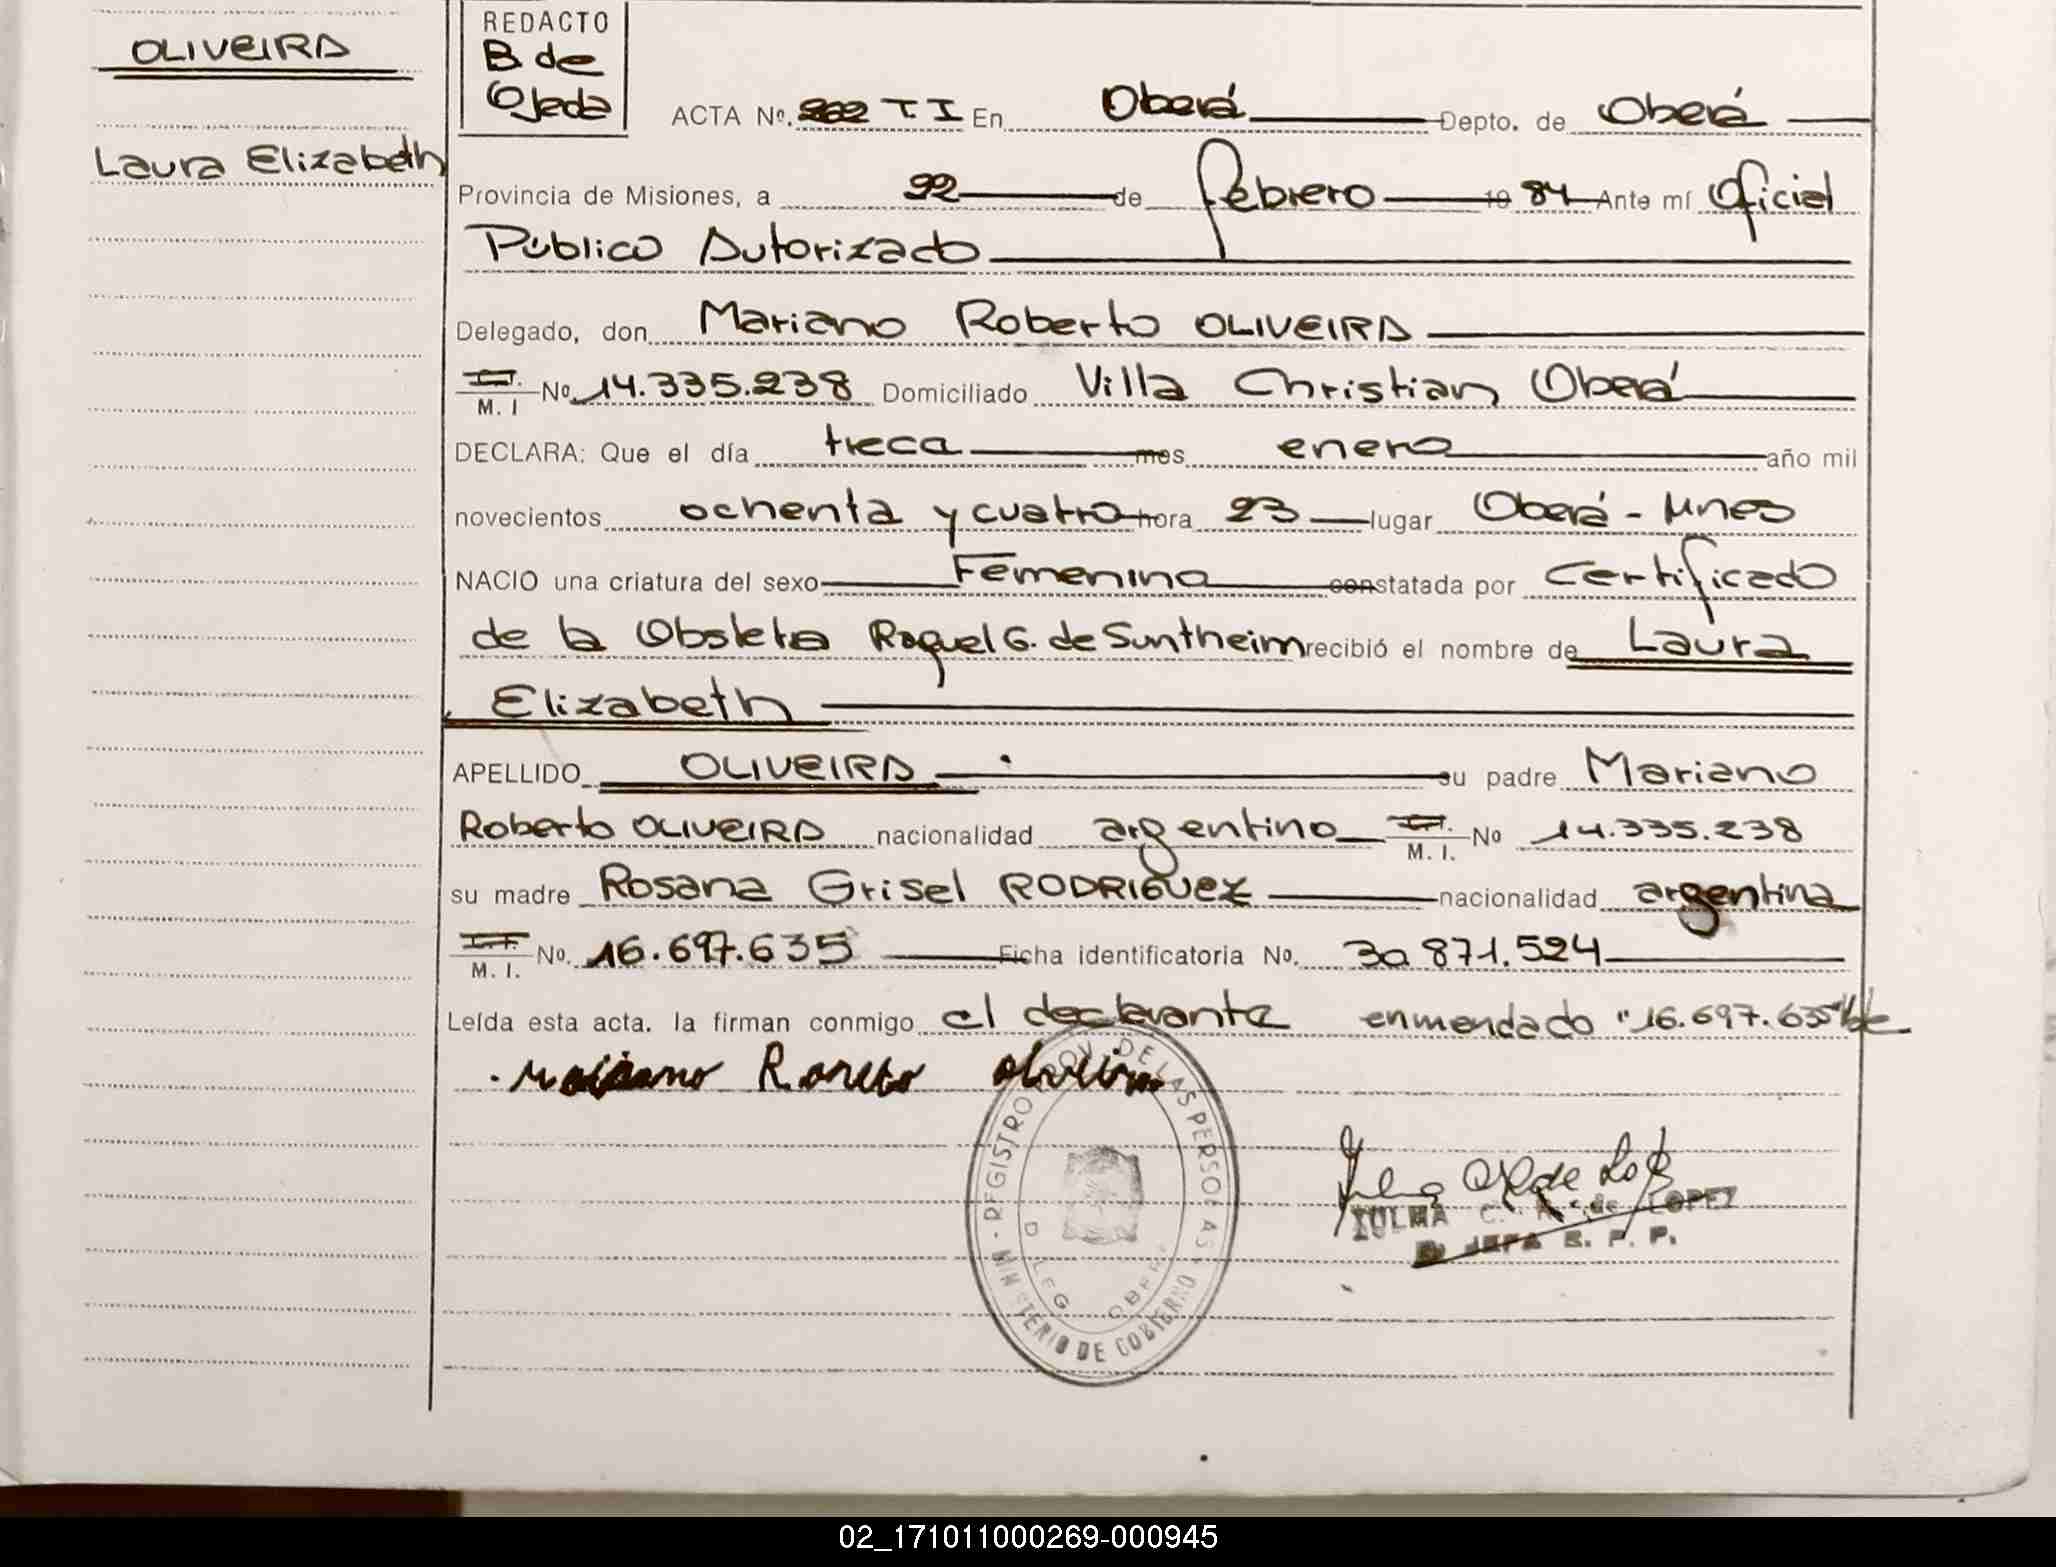 OLIVEIRA
Laura Elizabeth
REDACTO
B de
Ojeda
ACTA Nº. 202 T. I En Oberá Depto. de Oberá
Provincia de Misiones, a 22 de febrero 19 84 Ante mí Oficial
Público Autorizado
Delegado, don Mariano Roberto OLIVEIRA
M. I Nº 14.335.238 Domiciliado Villa Christian Oberá
DECLARA: Que el día trece mes enero año mil
novecientos ochenta y cuatro hora 23 lugar Oberá - Mnes
NACIO una criatura del sexo Femenino constatada por Certificado
de la Obstetra Raquel G. de Suntheim recibió el nombre de Laura
Elizabeth
APELLIDO OLIVEIRA su padre Mariano
Roberto OLIVEIRA nacionalidad argentino M. I. Nº 14.335.238
su madre Rosana Grisel RODRIGUEZ nacionalidad argentina
M. I. Nº. 16.697.635 Ficha identificatoria Nº. 30.871.524
Leída esta acta. la firman conmigo el declarante enmendado "16.697.635" Vale
Mariano Roberto Oliveira
REGISTRO PROV. DE LAS PERSONAS
DELEG. OBERA
MINISTERIO DE GOBIERNO
ZULMA C. A. de LOPEZ
JEFA R. P. P.
02_171011000269-000945